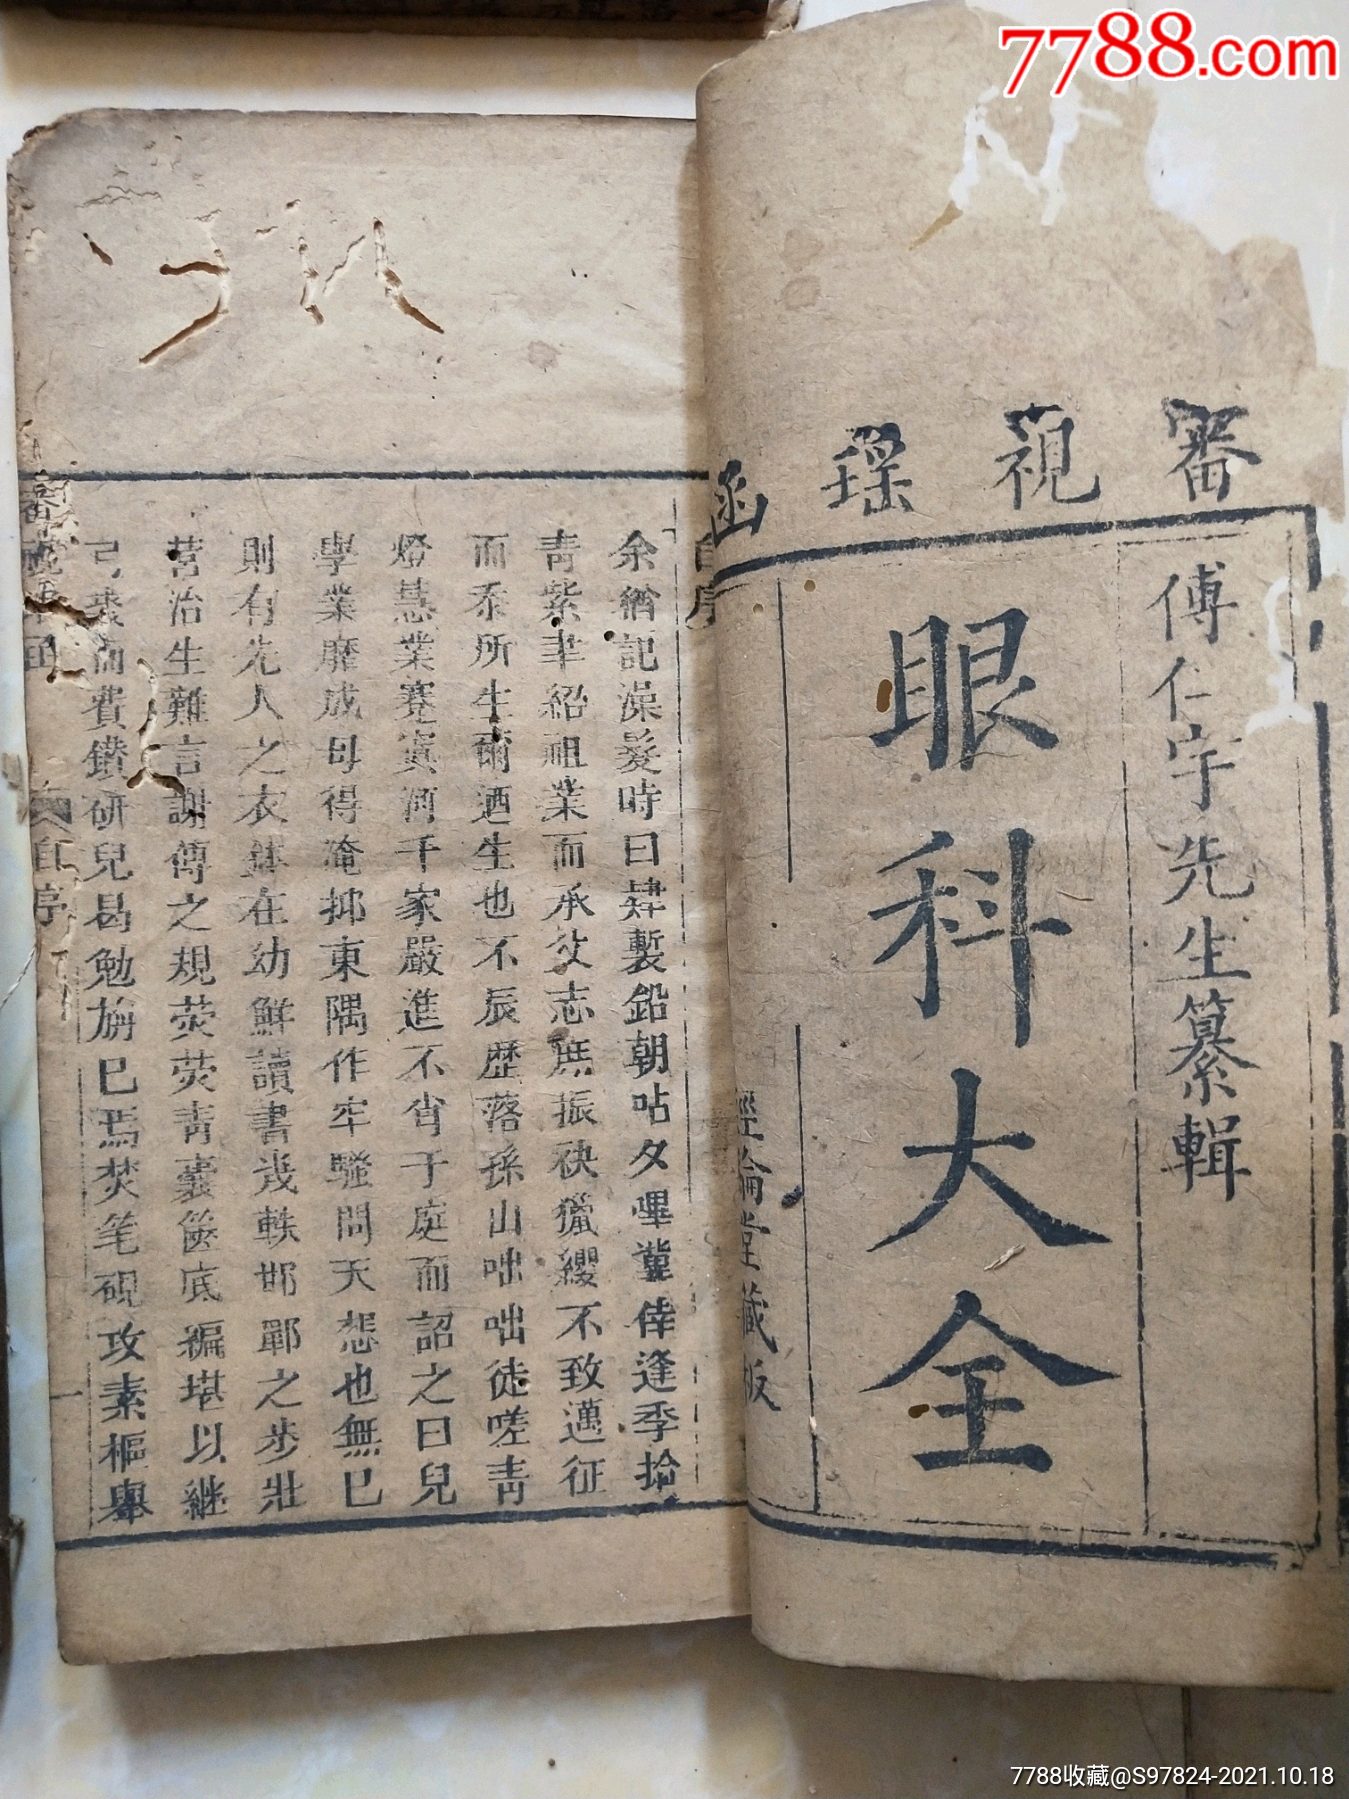 7788.com
審視瑶函
傅仁宇先生纂輯
眼科大全
經綸堂藏板
自序
余猶記澡髮時日肄槧鉛朝呫夕嗶冀倖逢季拾
青紫聿紹祖業而承父志庶振袂獵纓不致邁征
而忝所生爾迺生也不辰歷落孫山咄咄徒嗟青
燈慧業蹇寘河干家嚴進不肖于庭而詔之曰兒
學業靡成毋得淹抑東隅作牢騷問天想也無已
則有先人之衣鉢在幼鮮讀書幾軼邯鄲之步壯
營治生難言謝傅之規荧荧青囊篋底編堪以繼
弓裘而費鑽研兒曷勉旃巳焉焚笔硯攻素樞舉
審視瑤函 自序 一
7788收藏@S97824-2021.10.18